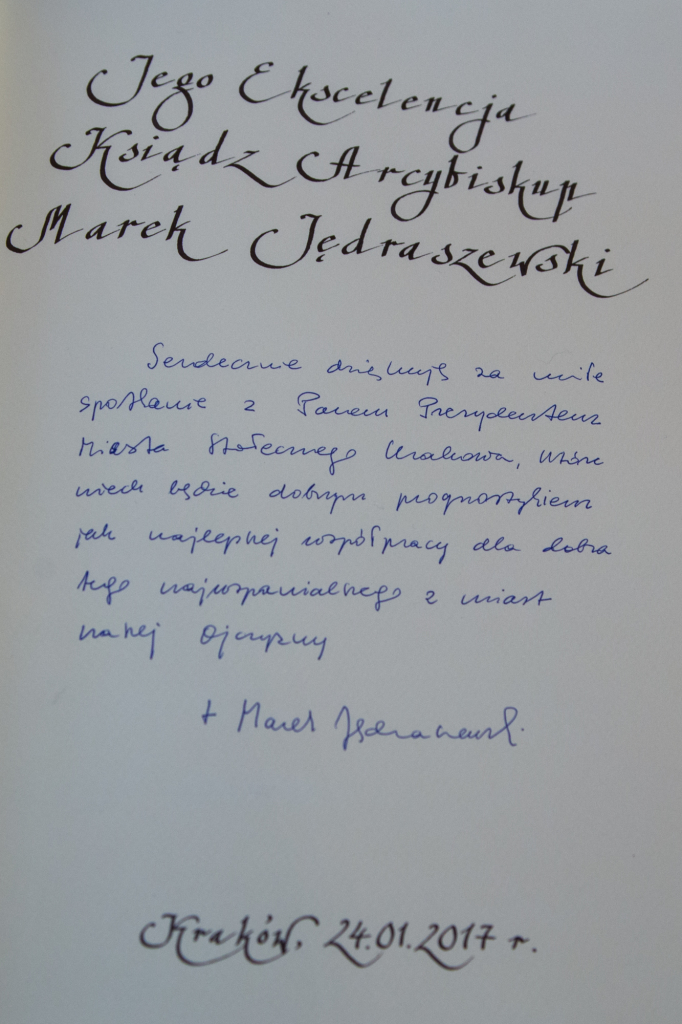 Jego Ekscelencja
Ksiądz Arcybiskup
Marek Jędraszewski
Serdecznie dziękuję za miłe
spotkanie z Panem Prezydentem
Miasta Stołecznego Krakowa, które
niech będzie dobrym prognostykiem
jak najlepszej współpracy dla dobra
tego najwspanialszego z miast
naszej Ojczyzny
+ Marek Jędraszewski
Kraków, 24.01.2017 r.